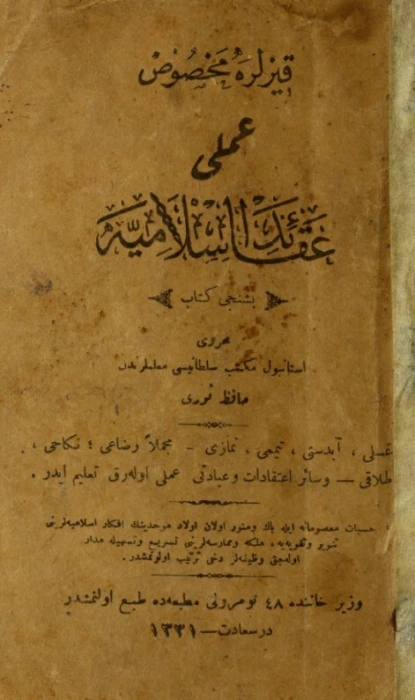 قیزلره مخصوص
عملی
عقائد اسلامیه
بشنجی کتاب
محرری
استانبول مکتب سلطانیسی معلملرندن
حافظ نوری
غسلی ، آبدستی ، تیممی ، نمازی - مجملاً رضاعی ؛ نکاحی ،
طلاقی — وسائر اعتقادات وعبادتی عملی اوله‌رق تعلیم ایدر .
حسیات معصومانه ایله پاك ومنور اولان اولاد موحدینك افکار اسلامیه‌لرینی
تنویر وتقویه‌یه ، ملکه وممارسه‌لرینی تسریع وتسهیله مدار
اوله‌جق وظیفه‌لر دخی ترتیب اولونمشدر .
وزیر خاننده ٤٨ نومرولی مطبعه‌ده طبع اولنمشدر
درسعادت — ١٣٣١